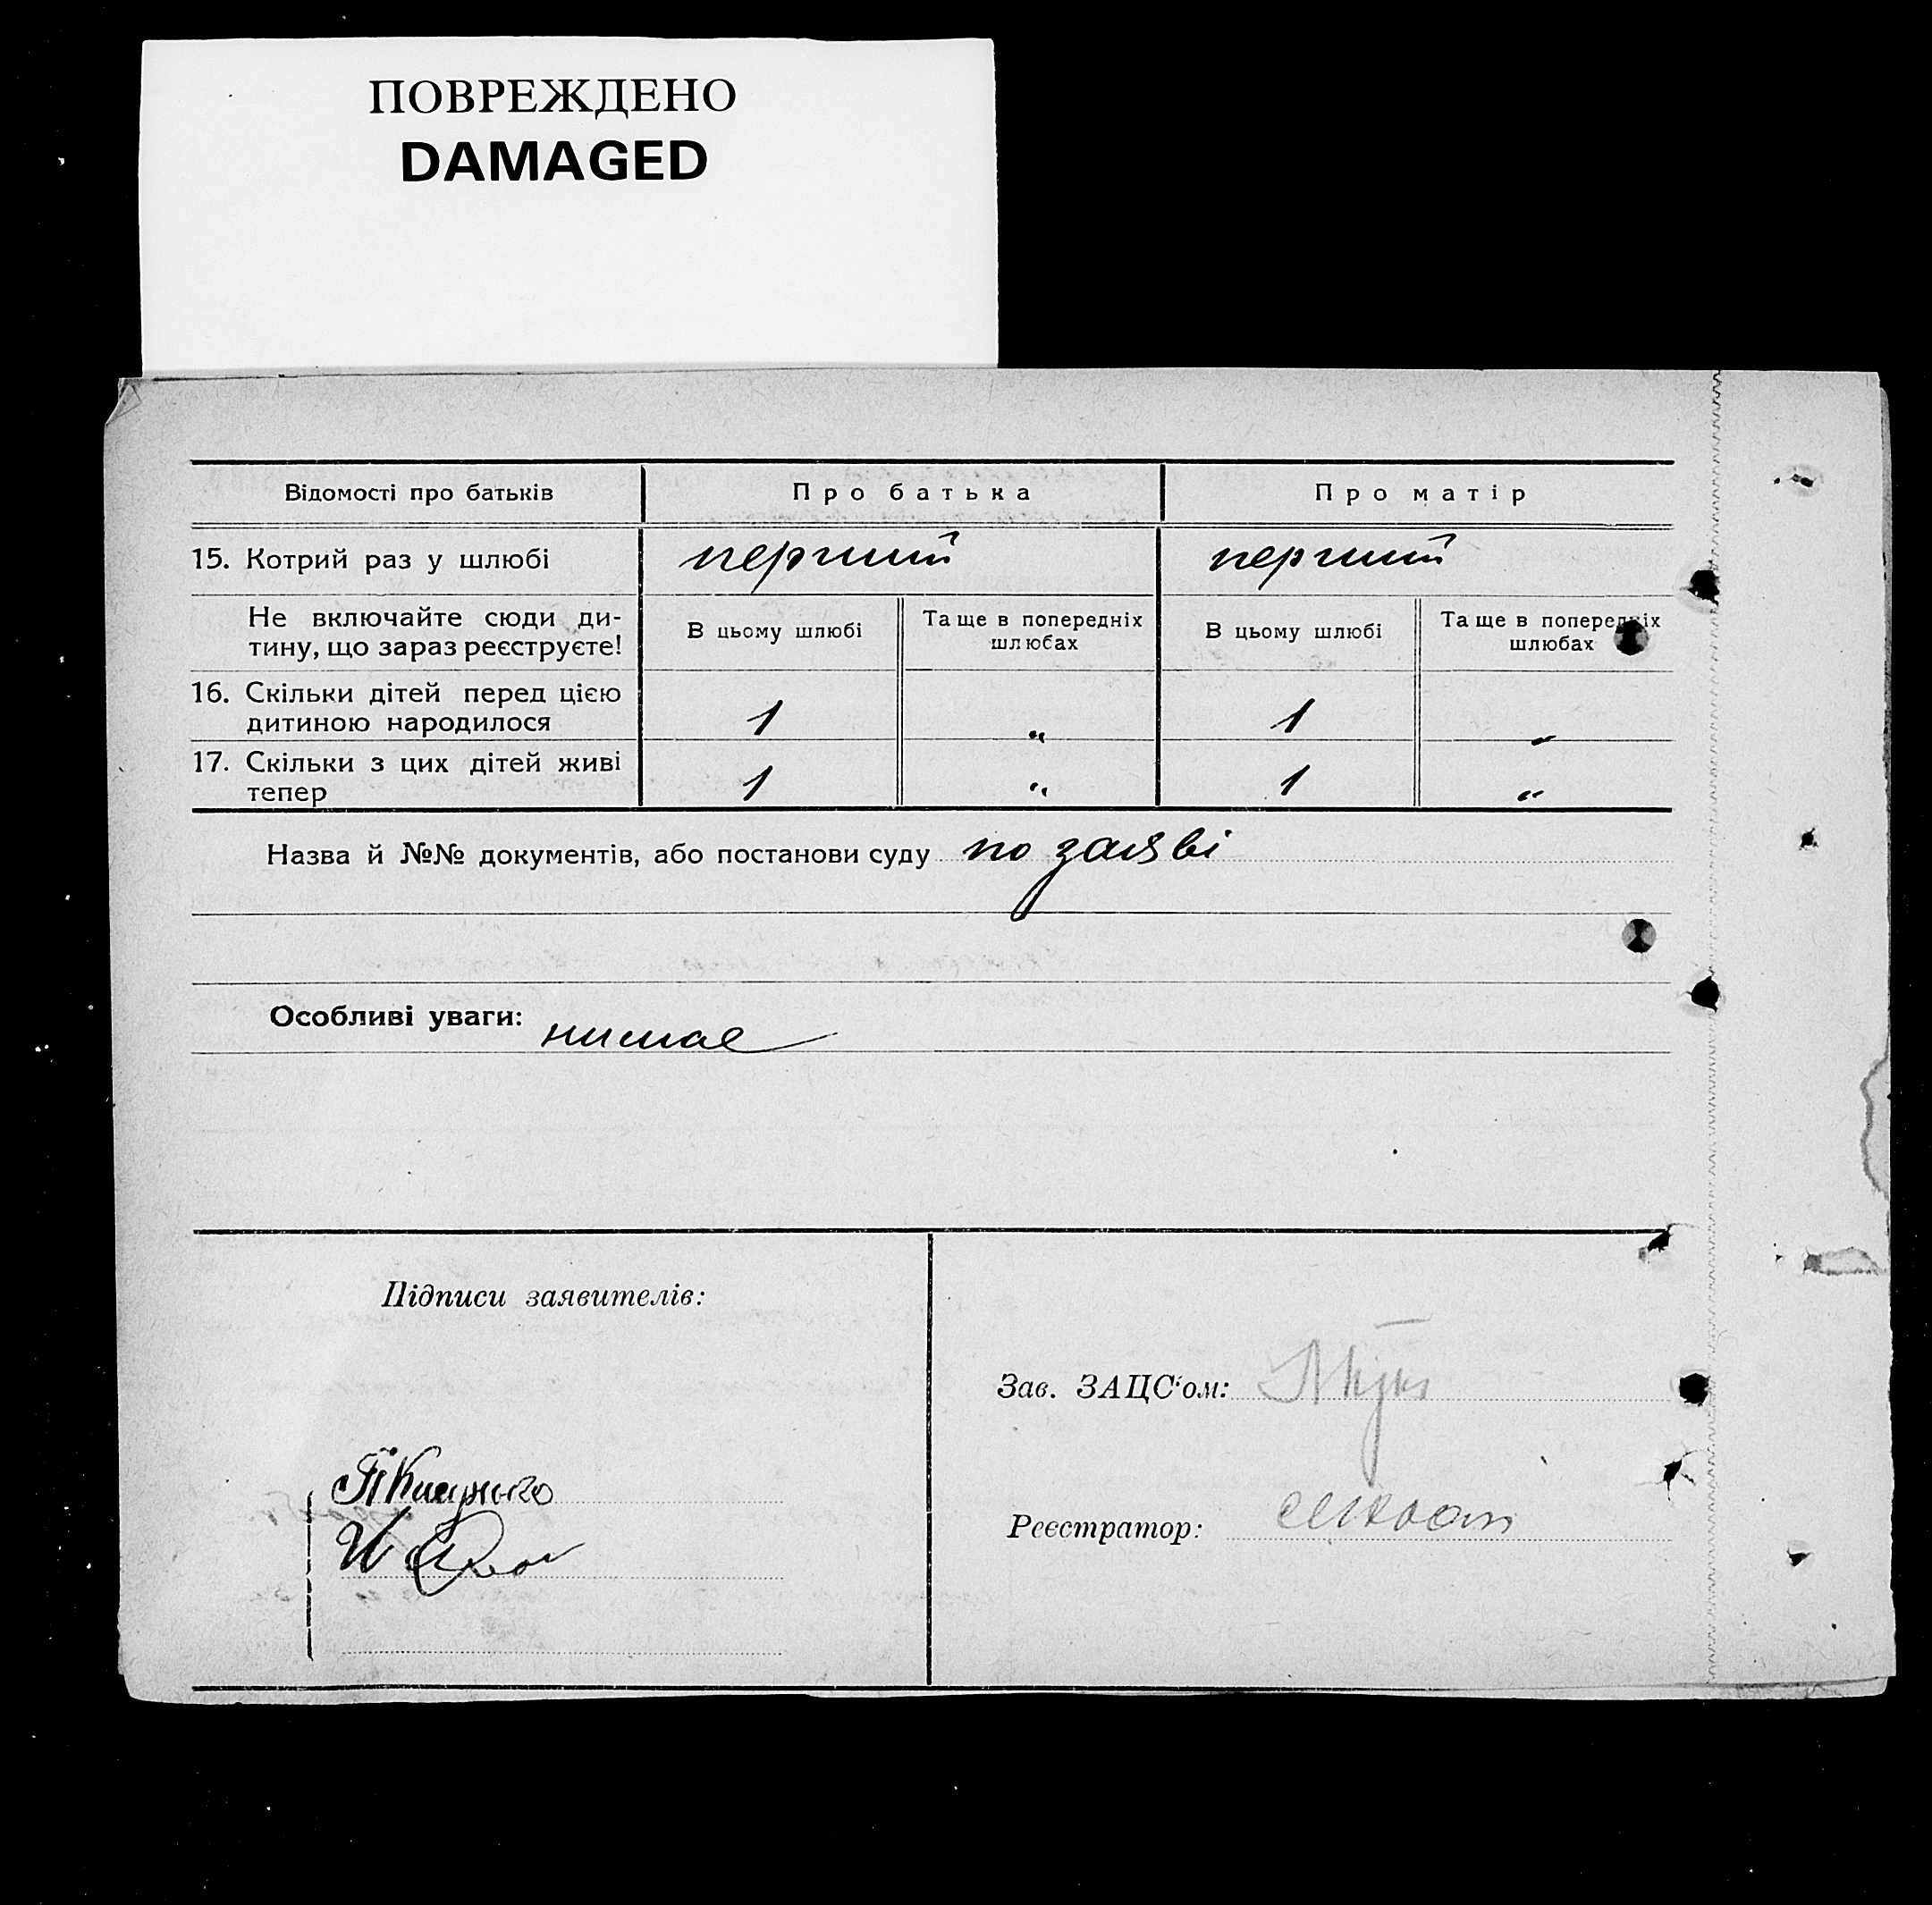 ПОВРЕЖДЕНО
DAMAGED
Відомості про батьків
Про батька
Про матір
15. Котрий раз у шлюбі
перший
перший
Не включайте сюди ди-
тину, що зараз реєструєте!
В цьому шлюбі
Та ще в попередніх
шлюбах
В цьому шлюбі
Та ще в попередніх
шлюбах
16. Скільки дітей перед цією
дитиною народилося
1
"
1
"
17. Скільки з цих дітей живі
тепер
1
"
1
"
Назва й №№ документів, або постанови суду по заяві
Особливі уваги: нимае
Підписи заявителів:
Зав. ЗАЦС'ом:
Реєстратор: